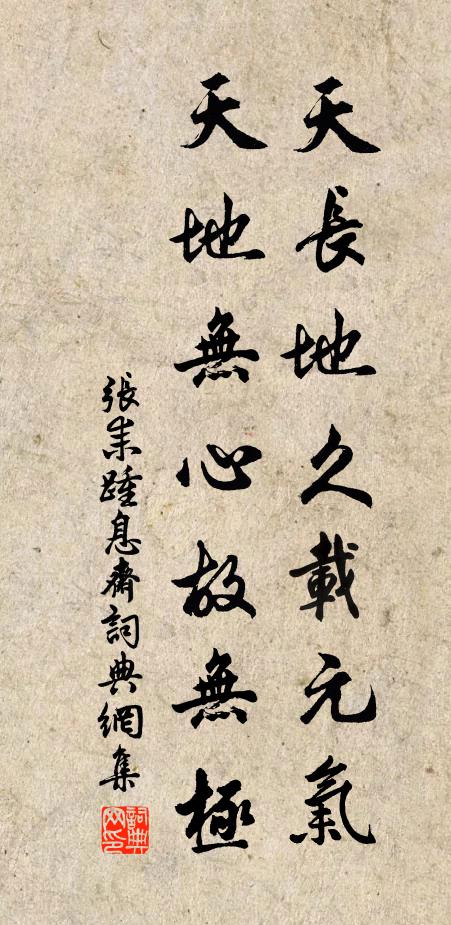 天長地久載元氣
天地無心故無極
張耒踵息齋詞典網集
詞典網印